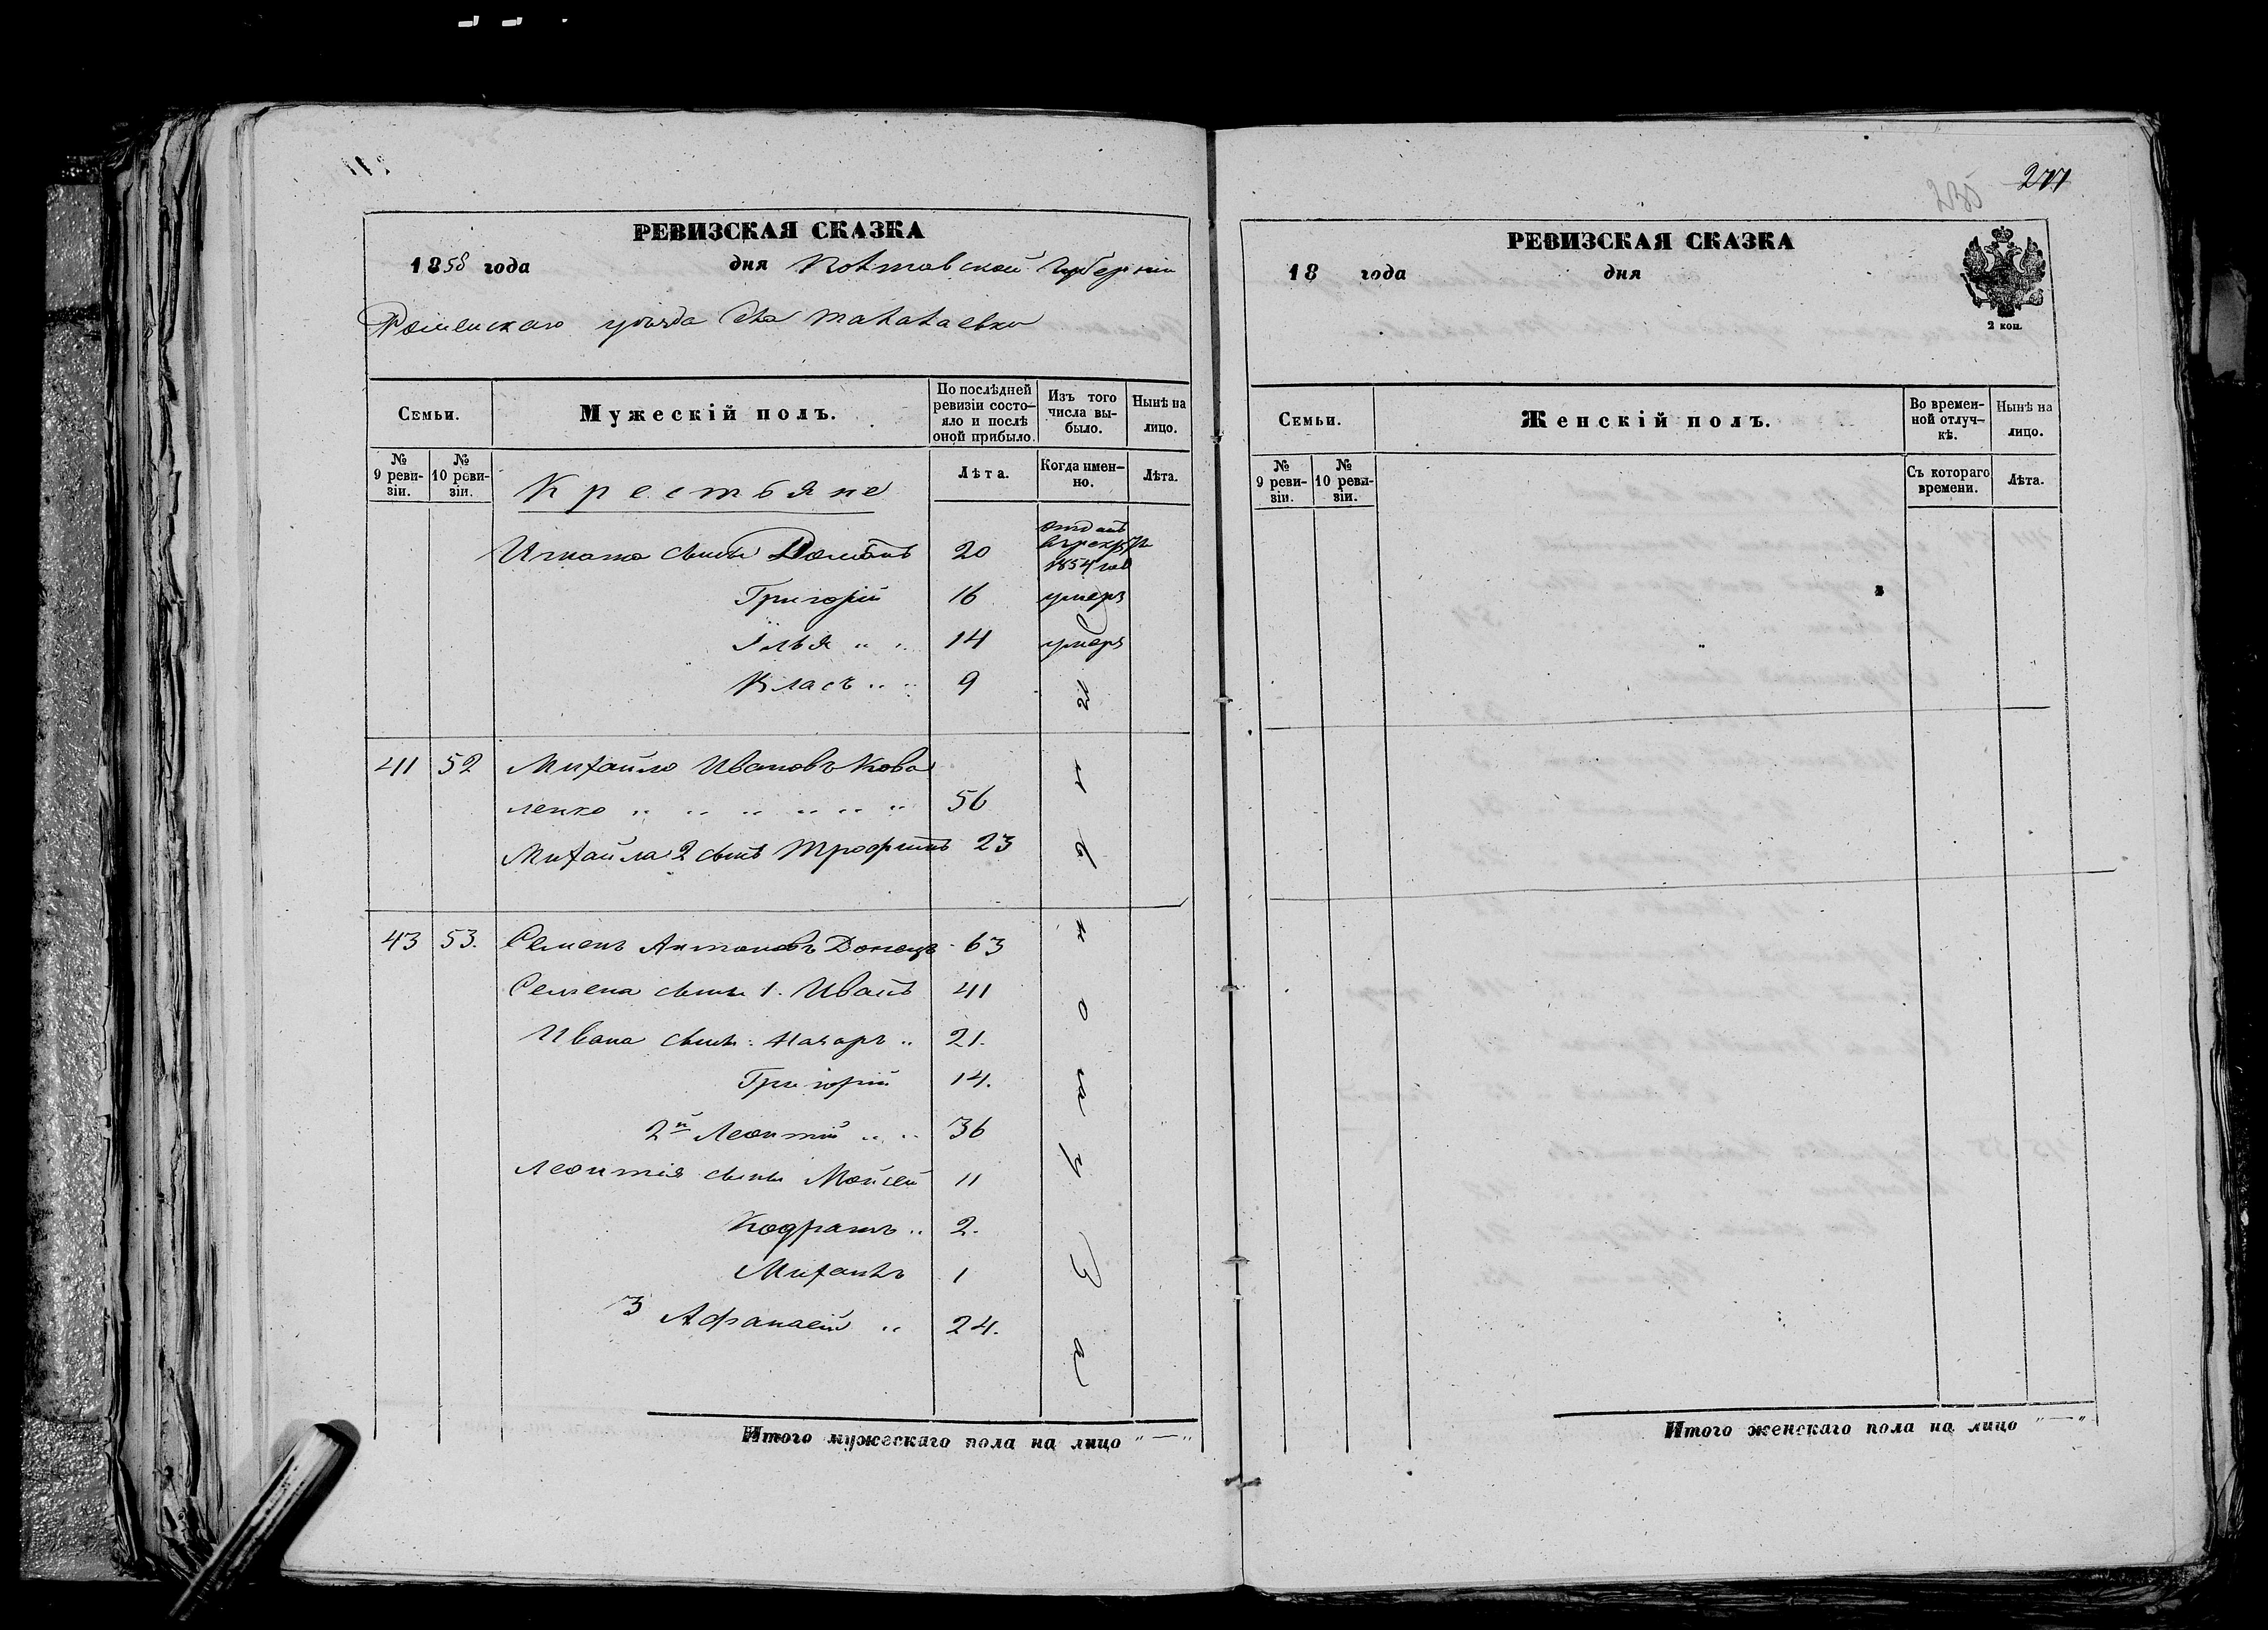 277
РЕВИЗСКАЯ СКАЗКА
1858 года дня Полтавской губерніи
Роменскаго уѣзда д. Талалаевки
Семьи.
Мужескій полъ.
По послѣдней ревизіи состо-
яло и послѣ оной прибыло.
Изъ того числа вы-
было.
Нынѣ на лицо.
№ 9 реви-
зіи.
№ 10 реви-
зіи.
Лѣта.
Когда имен-
но.
Лѣта.
Крестьяне
Игната сыны Романъ 20 отданъ
1854 год
Григорій 16 умеръ
Илья " " 14 умеръ
Власъ " " 9
41 52 Михайло Ивановъ Кова
ленко " " " " " " 56
Михайла 2 сынъ Трофимъ 23
43 53. Семенъ Антоновъ Донецъ 63
Семена сыны 1. Иванъ 41
Ивана сыны: Назаръ " 21.
Григорій 14.
2й Леонтій " " 36
Леонтія сыны Мойсей 11
Кодратъ " 2.
Михаилъ 1
3 Афанасій " 24.
Итого мужескаго пола на лицо "—"
РЕВИЗСКАЯ СКАЗКА
18 года дня
2 коп.
Семьи.
Женскій полъ.
Во времен-
ной отлуч-
кѣ.
Нынѣ на лицо.
№ 9 реви-
зіи.
№ 10 реви-
зіи.
Съ котораго времени.
Лѣта.
Итого женскаго пола на лицо "—"